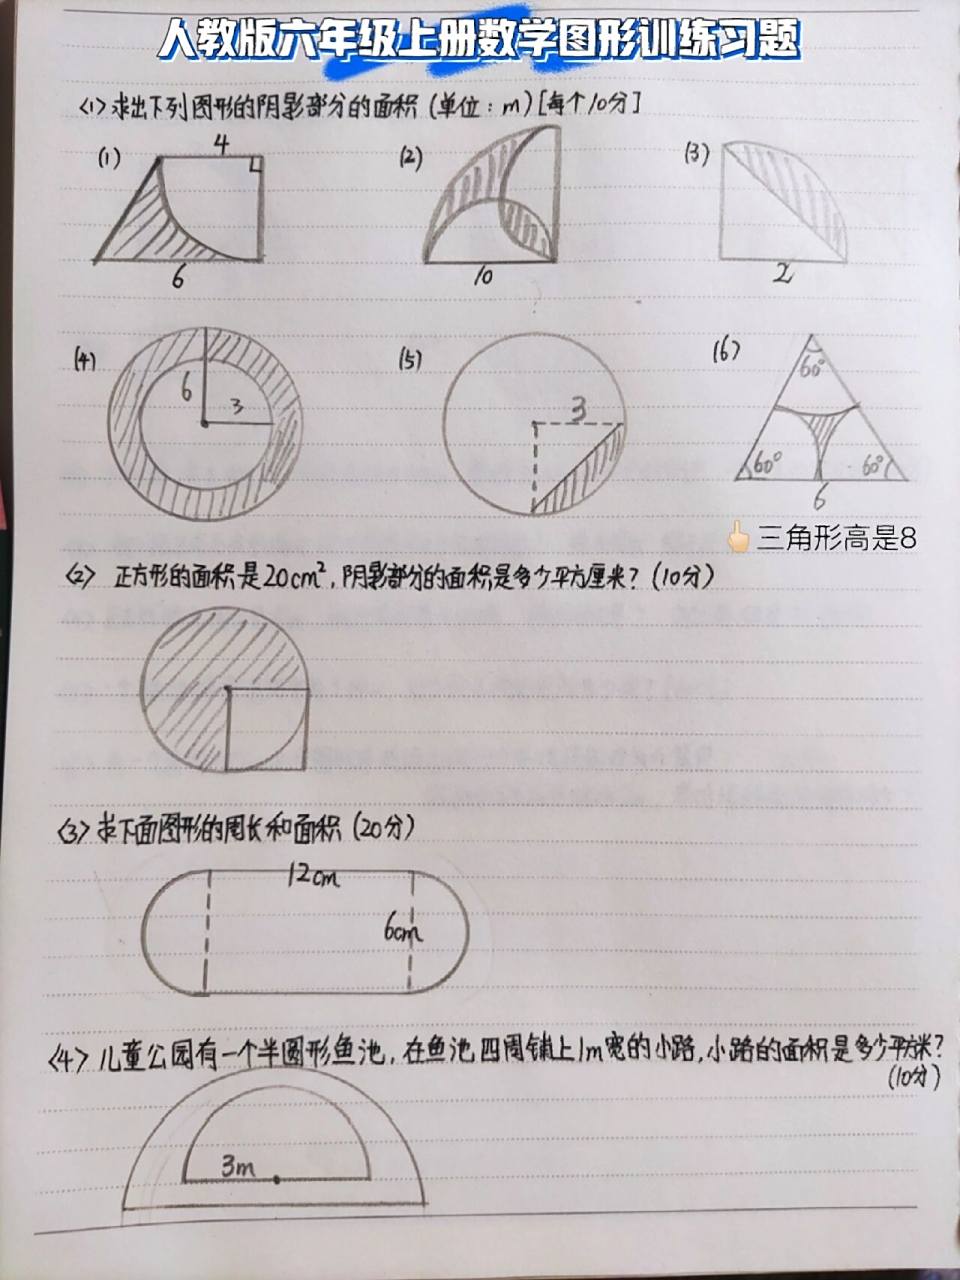 人教版六年级上册数学图形训练习题
<1>求出下列图形的阴影部分的面积(单位:m)[每个10分]
(1) 4 6
(2) 10
(3) 2
(4) 6 3
(5) 3
(6) 60° 60° 60° 6
👆🏻三角形高是8
<2> 正方形的面积是20cm²,阴影部分的面积是多少平方厘米?(10分)
<3>求下面图形的周长和面积(20分)
12cm
6cm
<4>儿童公园有一个半圆形鱼池,在鱼池四周铺上1m宽的小路,小路的面积是多少平方米?
(10分)
3m